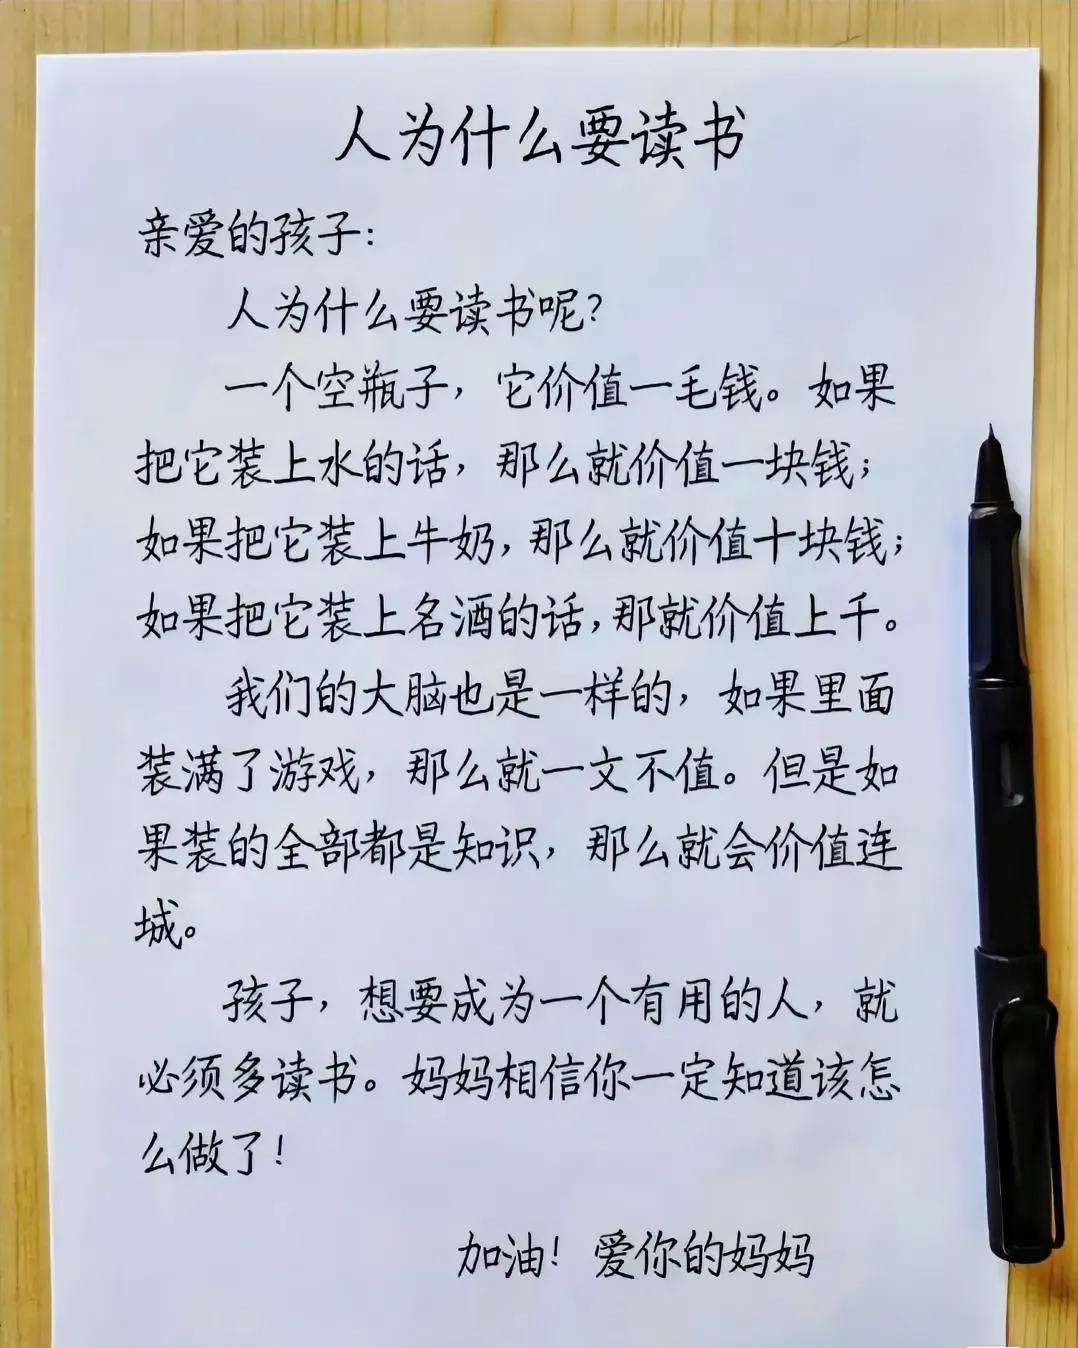 人为什么要读书
亲爱的孩子:
人为什么要读书呢?
一个空瓶子，它价值一毛钱。如果
把它装上水的话，那么就价值一块钱；
如果把它装上牛奶，那么就价值十块钱；
如果把它装上名酒的话，那就价值上千。
我们的大脑也是一样的，如果里面
装满了游戏，那么就一文不值。但是如
果装的全部都是知识，那么就会价值连
城。
孩子，想要成为一个有用的人，就
必须多读书。妈妈相信你一定知道该怎
么做了！
加油！爱你的妈妈